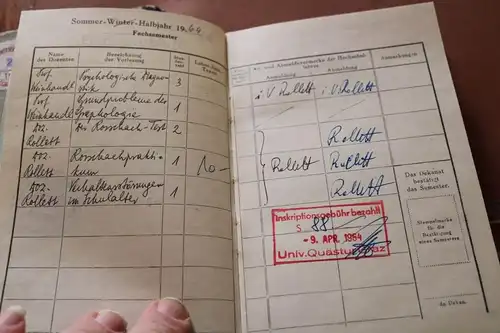 Sommer-Winter-Halbjahr 1964
Fachsemester
Name des Dozenten
Bezeichnung der Vorlesung
Prof. Weinhandl Psychologische Diagnostik 3
Prof. Weinhandl Grundprobleme der Graphologie 1
Doz. Rollett Der Rorschach-Test 2
Doz. Rollett Rorschachpraktikum 1
Doz. Rollett Verhaltensstörungen im Schulalter 1
10.-
An- und Abmeldevermerke der Hochschullehrer
Anmeldung
Abmeldung
Bemerkungen
i.V. Rollett i.V. Rollett
Rollett
Rollett Rollett
Rollett
Das Dekanat bestätigt das Semester.
Inskriptionsgebühr bezahlt
S 88
-9. APR. 1964
Univ. Quästur Graz
Stempelmarke
für die
Bestätigung
eines Semesters